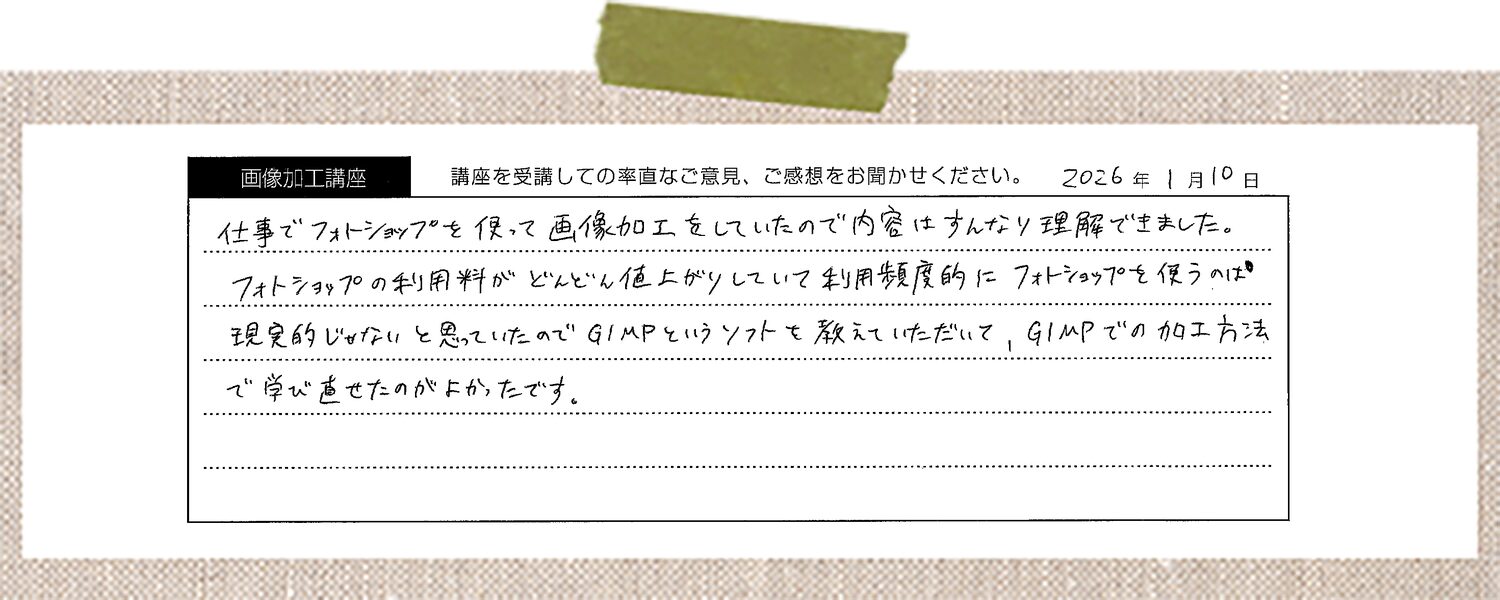 画像加工講座 講座を受講しての率直なご意見、ご感想をお聞かせください。 2026年1月10日
仕事でフォトショップを使って画像加工をしていたので内容はすんなり理解できました。
フォトショップの利用料がどんどん値上がりしていて利用頻度的にフォトショップを使うのは
現実的じゃないと思っていたのでGIMPというソフトを教えていただいて、GIMPでの加工方法
で学び直せたのがよかったです。